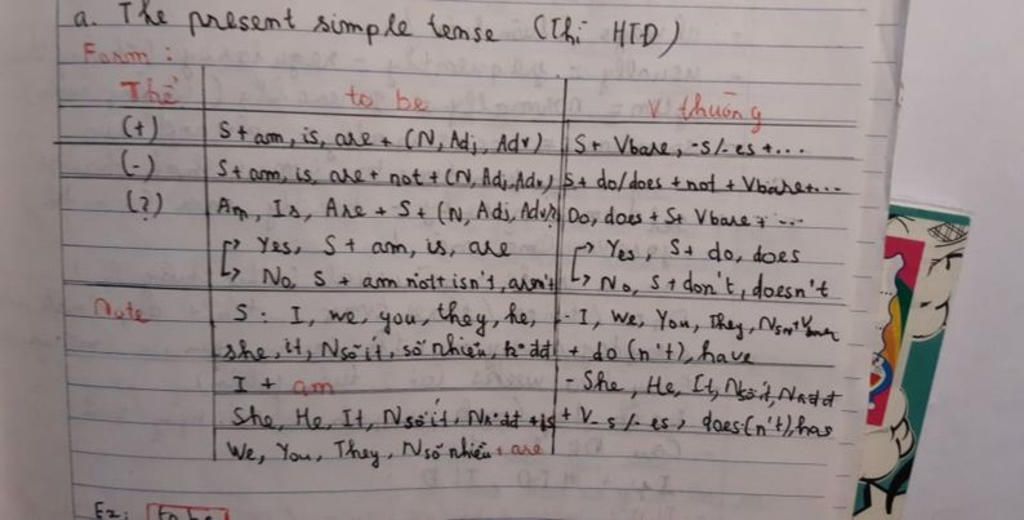 a. The present simple tense (Thì HTD)
Form :
Thể to be V thường
(+) S + am, is, are + (N, Adj, Adv) S + Vbare, -s/-es + ...
(-) S + am, is, are + not + (N, Adj, Adv) S + do/does + not + Vbare + ...
(?) Am, Is, Are + S + (N, Adj, Adv)? Do, does + S + Vbare + ...
↱ Yes, S + am, is, are ↱ Yes, S + do, does
↳ No, S + am not isn't, aren't ↳ No, S + don't, doesn't
Note S : I, we, you, they, he, - I, We, You, They, N
she, it, N số ít, số nhiều, k° đđ + do (n't), have
I + am - She, He, It, N số ít, N k° đđ
She, He, It, N số ít, N k° đđ + is + V - s /- es, does (n't), has
We, You, They, N số nhiều + are
Ex: to be